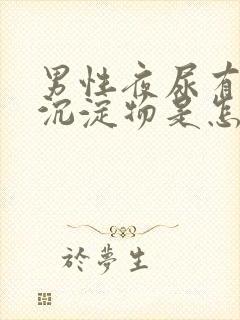 男性夜尿有
沉淀物是怎
於夢生